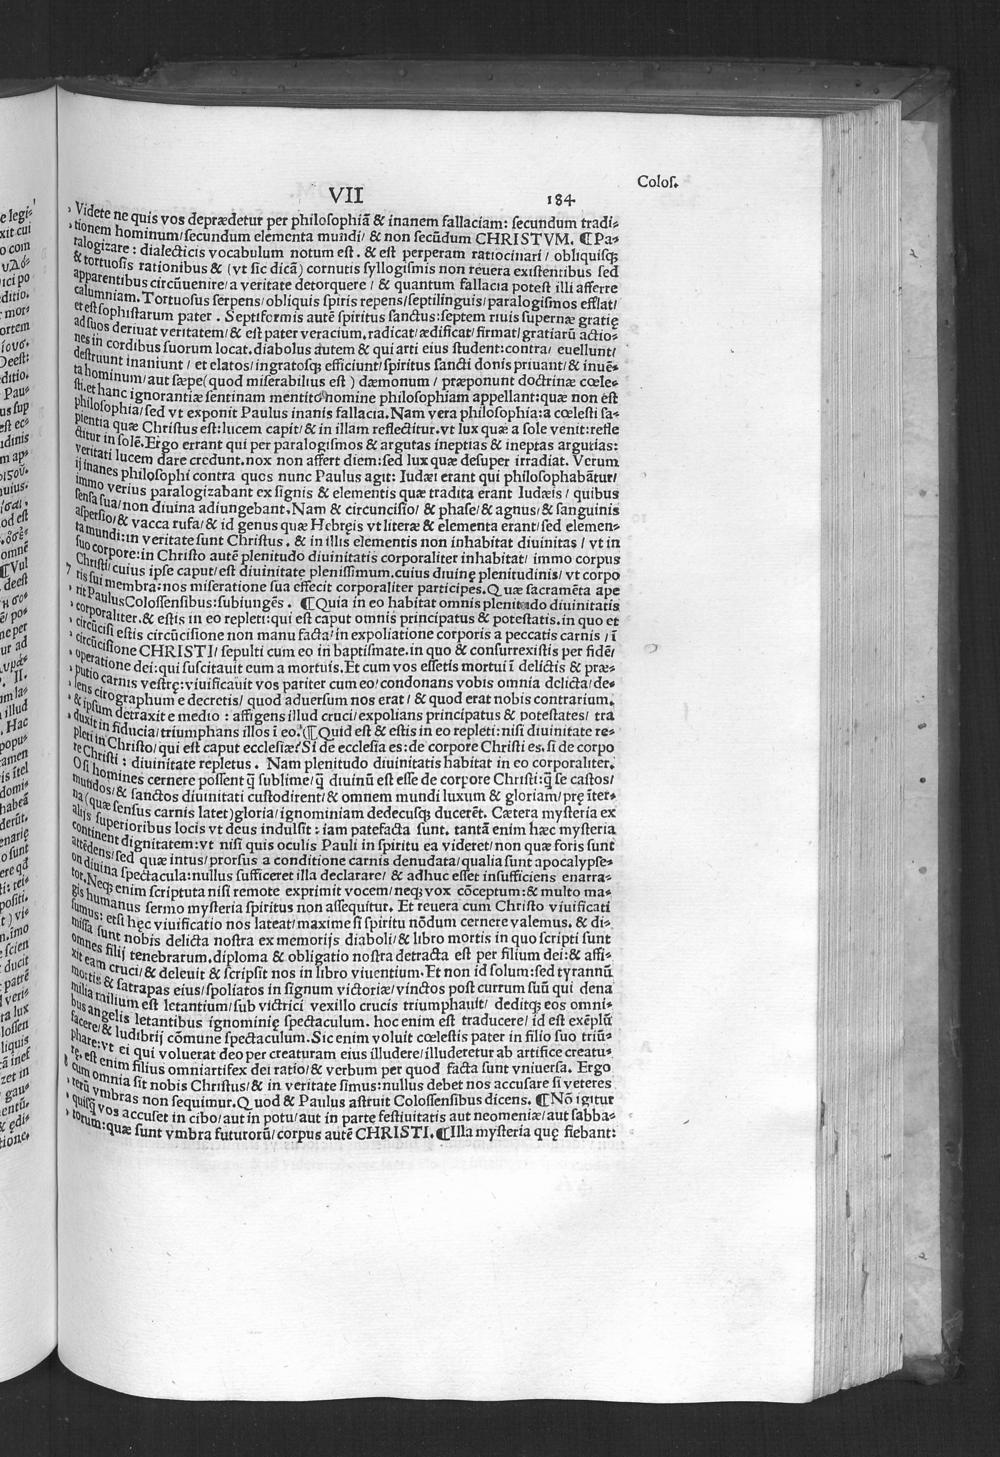 Colos.
VII 184
› Videte ne quis vos deprædetur per philosophiā & inanem fallaciam: secundum tradi⸗
› tionem hominum/secundum elementa mundi/ & non secūdum CHRISTVM. ¶Pa⸗
talogizare: dialecticis vocabulum notum est. & est perperam ratiocinari/ obliquisqȝ
& tortuosis rationibus & (vt sic dicā) cornutis syllogismis non reuera existentibus sed
apparentibus circūuenire/a veritate detorquere/ & quantum fallacia potest illi afferre
calumniam. Tortuosus serpens/obliquis spiris repens/septilinguis/paralogismos efflat/
et est sophistarum pater. Septiformis autē spiritus sanctus:septem riuis supernæ gratię
ad suos deriuat veritatem/& est pater veracium.radicat/ædificat/firmat/gratiarū actio⸗
nes in cordibus suorum locat.diabolus autem & qui arti eius student:contra/ euellunt/
destruunt inaniunt/ et elatos/ingratosqȝ efficiunt/spiritus sancti donis priuant/& inuē⸗
ta hominum/aut sæpe(quod miserabilius est) dæmonum/ præponunt doctrinæ cœle⸗
sti.et hanc ignorantiæ sentinam mentito nomine philosophiam appellant:quæ non est
philosophia/sed vt exponit Paulus inanis fallacia.Nam vera philosophia:a cœlesti sa⸗
pientia quæ Christus est:lucem capit/& in illam reflectitur.vt lux quæ a sole venit:refle
ctitur in solē.Ergo errant qui per paralogismos & argutas ineptias & ineptas argutias:
veritati lucem dare credunt.nox non affert diem:sed lux quæ desuper irradiat. Verum
ij inanes philosophi contra quos nunc Paulus agit: Iudæi erant qui philosophabātur/
immo verius paralogizabant ex signis & elementis quæ tradita erant Iudæis/ quibus
sensa sua/non diuina adiungebant.Nam & circuncisio/ & phase/& agnus/& sanguinis
aspersio/& vacca rufa/& id genus quæ Hebręis vt literæ & elementa erant/sed elemen⸗
ta mundi:in veritate sunt Christus. & in illis elementis non inhabitat diuinitas/ vt in
suo corpore:in Christo autē plenitudo diuinitatis corporaliter inhabitat/ immo corpus
Christi/cuius ipse caput/est diuinitate plenissimum.cuius diuinę plenitudinis/vt corpo
7 ris sui membra:nos miseratione sua effecit corporaliter participes.Quæ sacramēta ape
› rit Paulus Colossensibus:subiungēs. ¶Quia in eo habitat omnis plenitudo diuinitatis
› corporaliter.& estis in eo repleti:qui est caput omnis principatus & potestatis.in quo et
› circūcisi estis circūcisione non manu facta/in expoliatione corporis a peccatis carnis/ī
› circūcisione CHRISTI/sepulti cum eo in baptismate.in quo & consurrexistis per fidē/
› operatione dei:qui suscitauit eum a mortuis.Et cum vos essetis mortui ī delictis & præ⸗
› putio carnis vestrę:viuificauit vos pariter cum eo/condonans vobis omnia delicta/de⸗
› lens cirographum e decretis/ quod aduersum nos erat/& quod erat nobis contrarium.
› & ipsum detraxit e medio: affigens illud cruci/expolians principatus & potestates/ tra
› duxit in fiducia/triumphans illos ī eo. ¶Quid est & estis in eo repleti:nisi diuinitate re⸗
pleti in Christo/qui est caput ecclesiæ? Si de ecclesia es:de corpore Christi es. si de corpo
re Christi: diuinitate repletus. Nam plenitudo diuinitatis habitat in eo corporaliter.
O si homines cernere possent q̄ sublime/q̄ diuinū est esse de corpore Christi:q̄ se castos/
mundos/& sanctos diuinitati custodirent/& omnem mundi luxum & gloriam/prę īter⸗
na(quæ sensus carnis latet)gloria/ignominiam dedecusqȝ ducerēt. Cætera mysteria ex
alijs superioribus locis vt deus indulsit: iam patefacta sunt. tantā enim hæc mysteria
continent dignitatem:vt nisi quis oculis Pauli in spiritu ea videret/non quæ foris sunt
attēdens/sed quæ intus/prorsus a conditione carnis denudata/qualia sunt apocalypse⸗
on diuina spectacula:nullus sufficeret illa declarare/& adhuc esset insufficiens enarra⸗
tor.Neqȝ enim scriptuta nisi remote exprimit vocem/neqȝ vox cōceptum:& multo ma⸗
gis humanus sermo mysteria spiritus non assequitur. Et reuera cum Christo viuificati
sumus: etsi hęc viuificatio nos lateat/maxime si spiritu nōdum cernere valemus. & di⸗
missa sunt nobis delicta nostra ex memorijs diaboli/& libro mortis in quo scripti sunt
omnes filij tenebrarum.diploma & obligatio nostra detracta est per filium dei:& affi⸗
xit eam cruci/& deleuit & scripsit nos in libro viuentium.Et non id solum:sed tyrannū
mortis & satrapas eius/spoliatos in signum victoriæ/vinctos post currum suū qui dena
milia milium est letantium/sub victrici vexillo crucis triumphauit/ deditqȝ eos omni⸗
bus angelis letantibus ignominię spectaculum. hoc enim est traducere/id est exēplū
facere/& ludibrij cōmune spectaculum.Sic enim voluit cœlestis pater in filio suo triū⸗
phare:vt ei qui voluerat deo per creaturam eius illudere/illuderetur ab artifice creatu⸗
rę.est enim filius omniartifex dei ratio/& verbum per quod facta sunt vniuersa. Ergo
8 cum omnia sit nobis Christus/& in veritate simus:nullus debet nos accusare si veteres
› terū vmbras non sequimur.Quod & Paulus astruit Colossensibus dicens. ¶Nō igitur
› quisq̄ vos accuset in cibo/aut in potu/aut in parte festiuitatis aut neomeniæ/aut sabba⸗
› torum:quæ sunt vmbra futurorū/corpus autē CHRISTI.¶Illa mysteria quę fiebant: